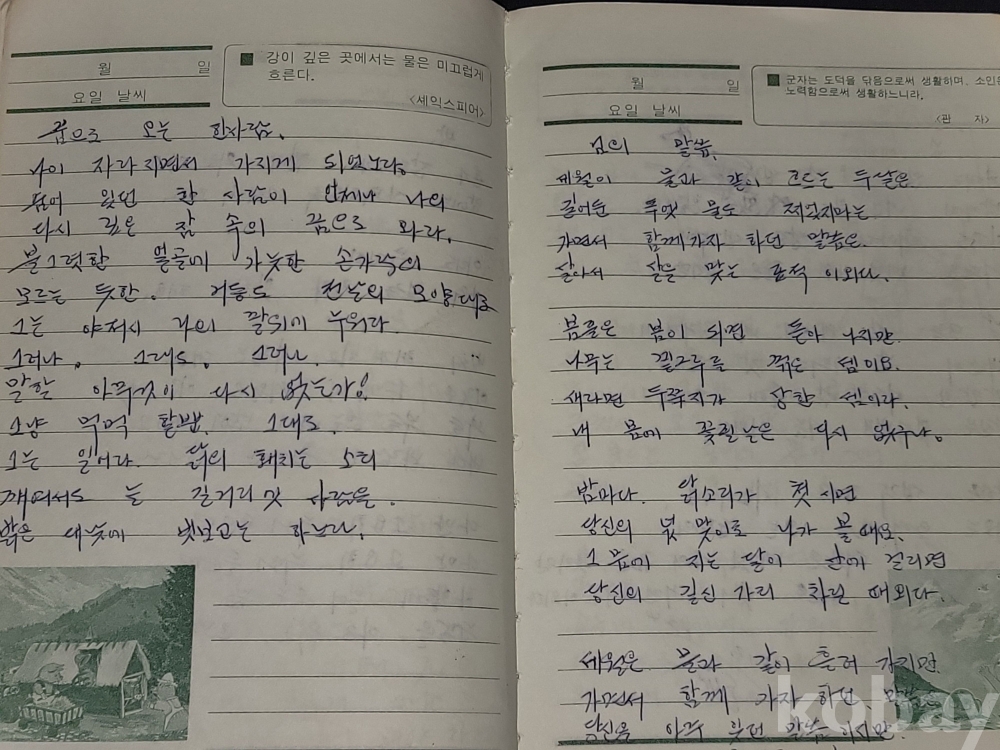 월 일
요일 날씨
강이 깊은 곳에서는 물은 미끄럽게
흐른다.
〈세익스피어〉
꿈으로 오는 한사람.
나이 자라지면서 가지게 되었노라.
숨어 있던 한 사람이 언제나 나의
다시 깊은 잠 속의 꿈으로 와라.
불그렷한 얼골에 가늣한 손가락의
모르는 듯한. 거동도 전날의 모양대로
그는 야저시 나의 팔위에 누워라
그러나, 그래도, 그러나.
말할 아무것이 다시 없는가!
그냥 먹먹 할뿐. 그대로.
그는 일어라. 닭의 홰치는 소리
깨여서도 늘 길거리엣 사람을.
밝은 대낮에 빗보고는 하노라.
월 일
요일 날씨
군자는 도덕을 닦음으로써 생활하며, 소인은
노력함으로써 생활하느니라.
님의 말씀.
세월이 물과 같이 흐르는 두달은
길어둔 독엣 물도 찌었지마는
가면서 함께가자 하던 말씀은
살아서 살을 맞는 표적 이외다.
봄풀은 봄이 되면 돋아 나지만
나무는 밑그루를 꺾은 셈이요.
새라면 두쭉지가 상한 셈이라.
내 몸에 꽃필날은 다시 없구나.
밤마다. 닭소리가 첫 시면
당신의 넋 맞이로 나가 볼때요.
그 믐에 지는 달이 산에 걸리면
당신의 길신 가리 차릴 때외다.
세월은 물과 같이 흘러 가지만
가면서 함께 가자 하던 말씀은
당신을 아주 잊던 말씀 이지만
kobay